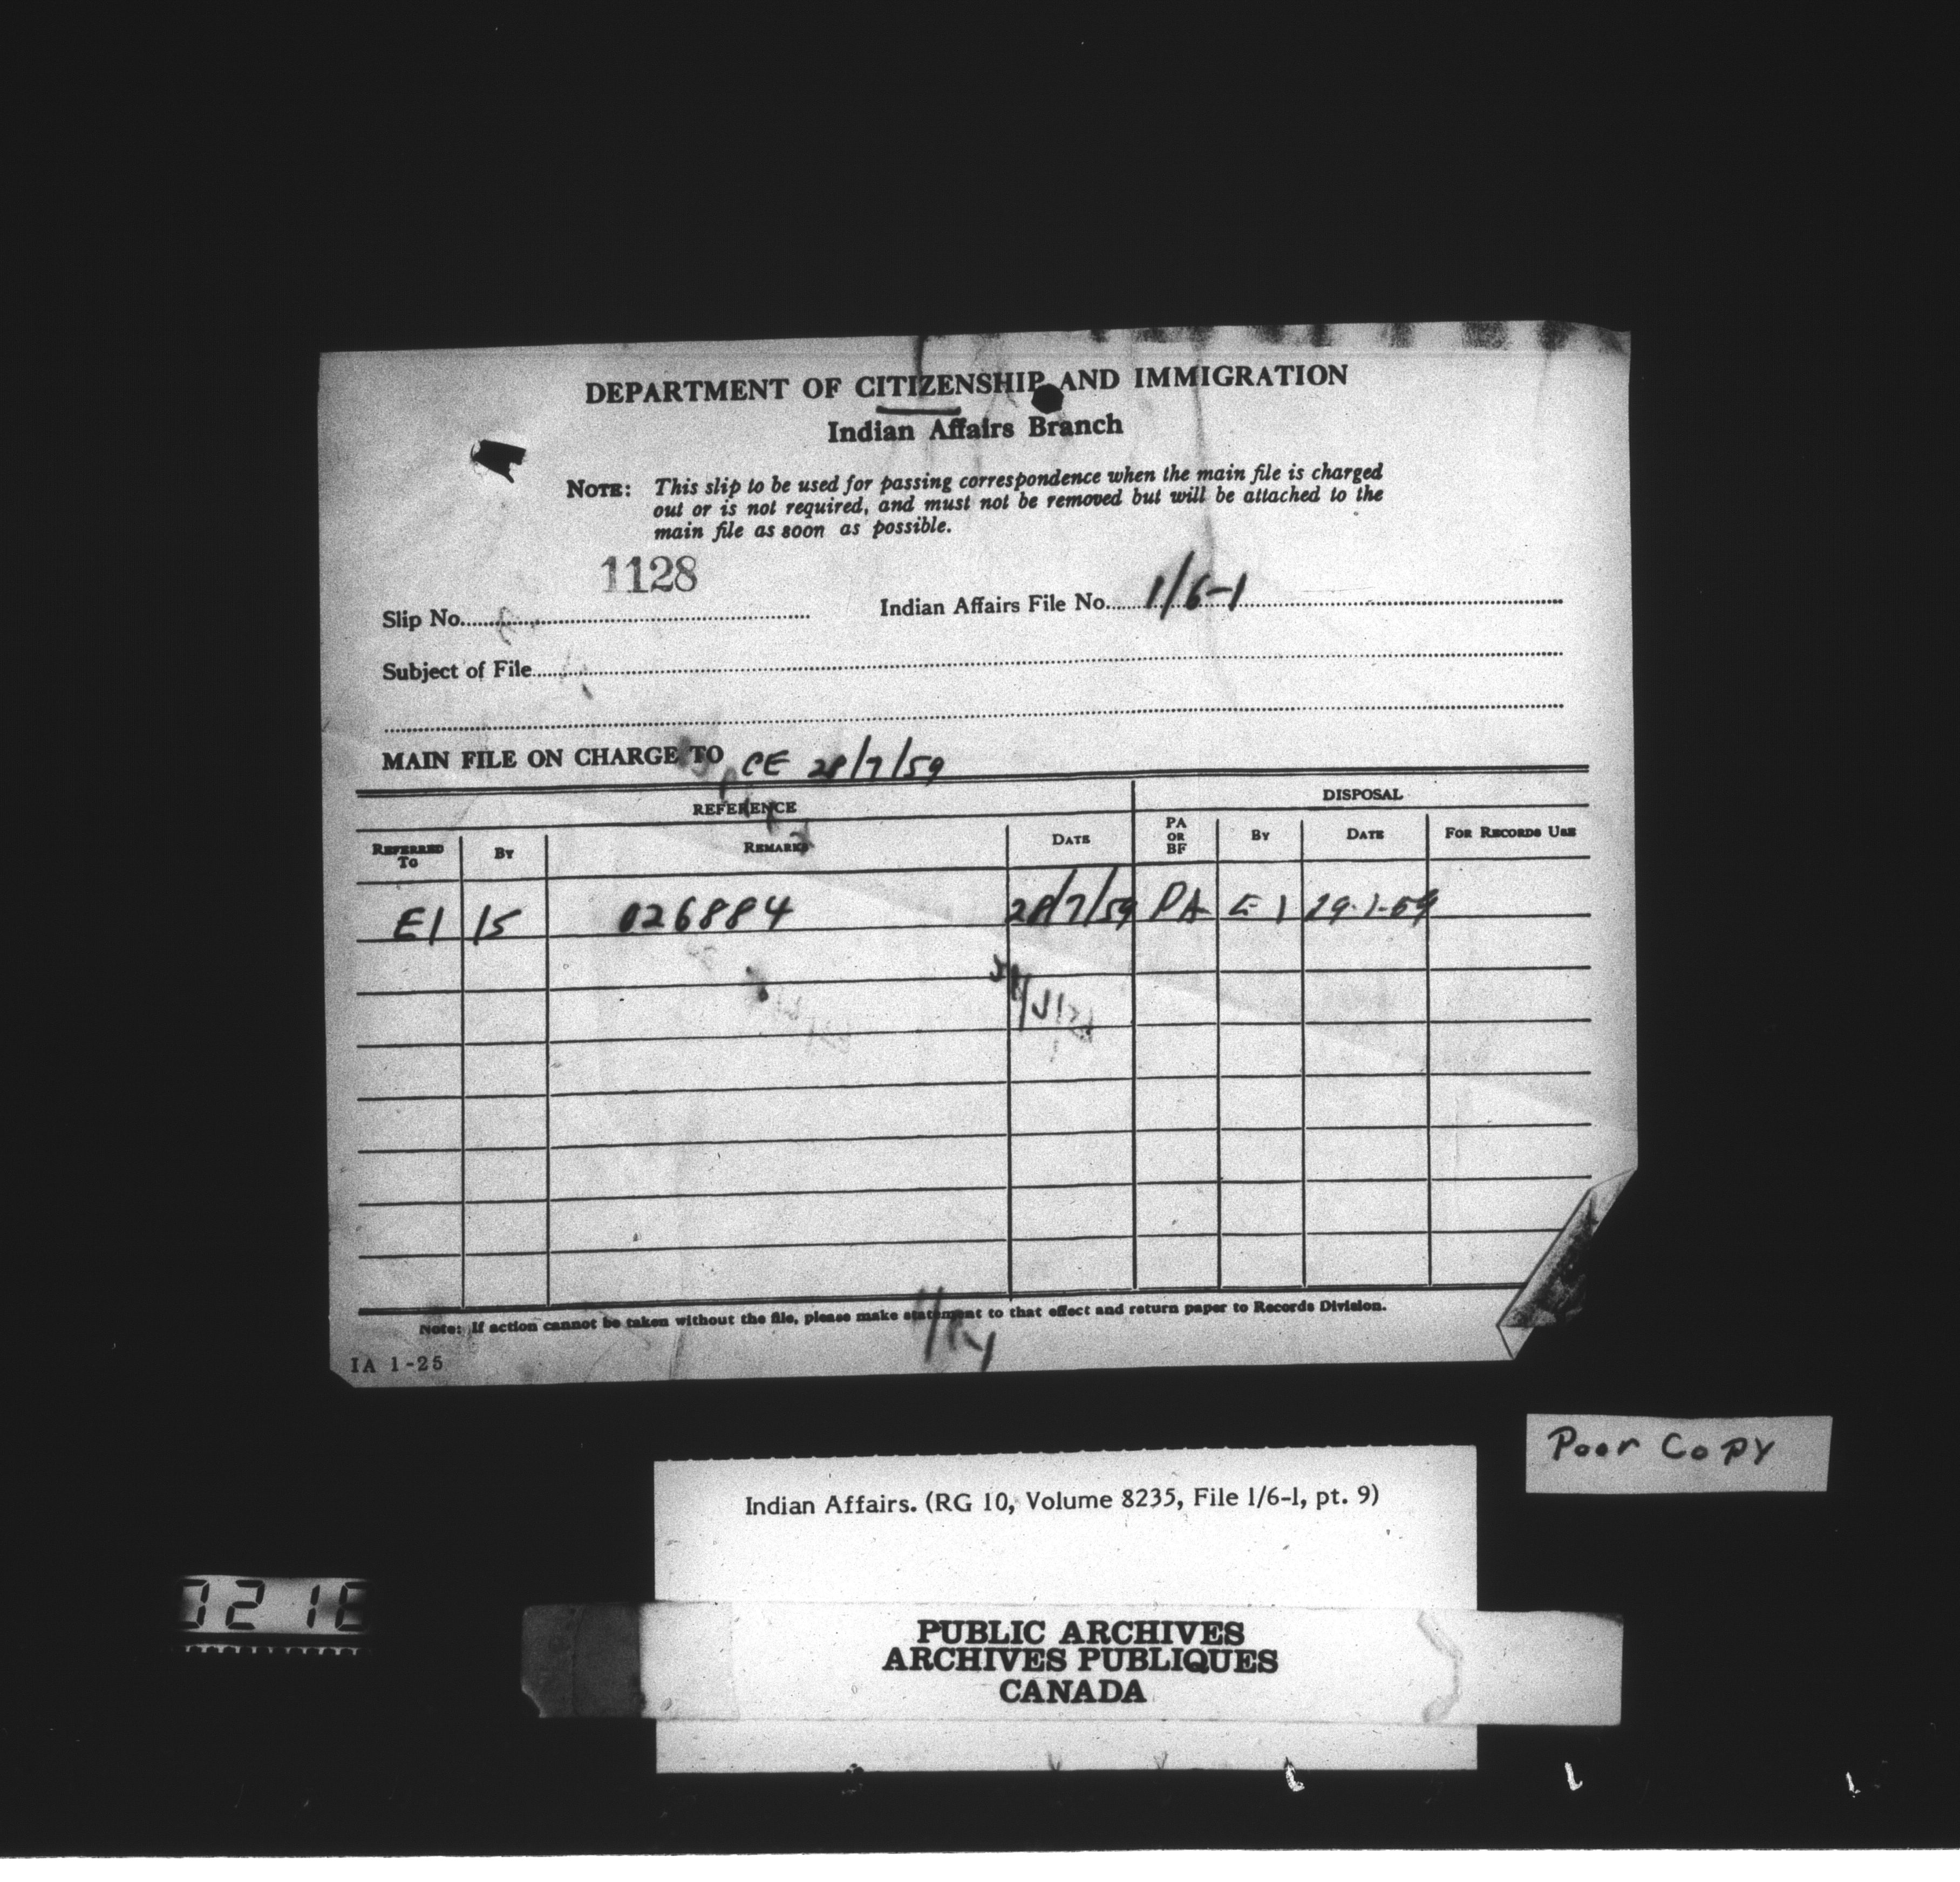 DEPARTMENT OF CITIZENSHIP AND IMMIGRATION
Indian Affairs Branch
NOTE: This slip to be used for passing correspondence when the main file is charged
out or is not required, and must not be removed but will be attached to the
main file as soon as possible.
1128
Slip No. Indian Affairs File No. 1/6-1
Subject of File
MAIN FILE ON CHARGE TO CE 28/7/59
REFERENCE DISPOSAL
REFERRED TO BY REMARKS DATE PA OR BF BY DATE FOR RECORDS USE
E1 15 026884 28/7/59 PA E1
Note: If action cannot be taken without the file, please make statement to that effect and return paper to Records Division.
IA 1-25
Poor Copy
Indian Affairs. (RG 10, Volume 8235, File 1/6-1, pt. 9)
PUBLIC ARCHIVES
ARCHIVES PUBLIQUES
CANADA